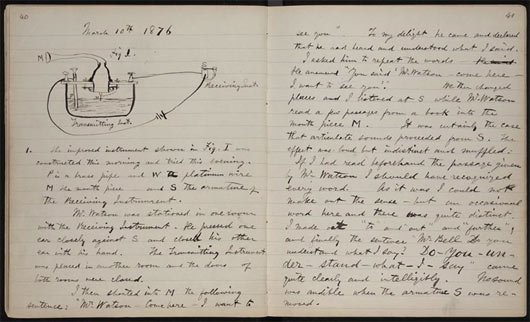 40
March 10th 1876
Fig. 1.
M
S
P
W
Receiving Inst.
Transmitting Inst.
1. The improved instrument shown in Fig. I was
constructed this morning and tried this evening.
P is a brass pipe and W the platinum wire
M the mouth piece and S the armature of
the Receiving Instrument.
Mr. Watson was stationed in one room
with the Receiving Instrument. He pressed one
ear closely against S and closed his other
ear with his hand. The Transmitting Instrument
was placed in another room and the doors of
both rooms were closed.
I then shouted into M the following
sentence: "Mr. Watson - Come here - I want to
41
see you". To my delight he came and declared
that he had heard and understood what I said.
I asked him to repeat the words.
He answered "You said 'Mr. Watson - come here -
I want to see you'." We then changed
places and I listened at S while Mr. Watson
read a few passages from a book into the
mouth piece M. It was certainly the case
that articulate sounds proceeded from S. The
effect was loud but indistinct and muffled.
If I had read beforehand the passage given
by Mr. Watson I should have recognized
every word. As it was I could not
make out the sense - but an occasional
word here and there was quite distinct.
I made out "to" and "out" and "further";
and finally the sentence "Mr. Bell Do you
understand what I say? Do-you-un-
der-stand-what-I-say" came
quite clearly and intelligibly. No sound
was audible when the armature S was re-
moved.